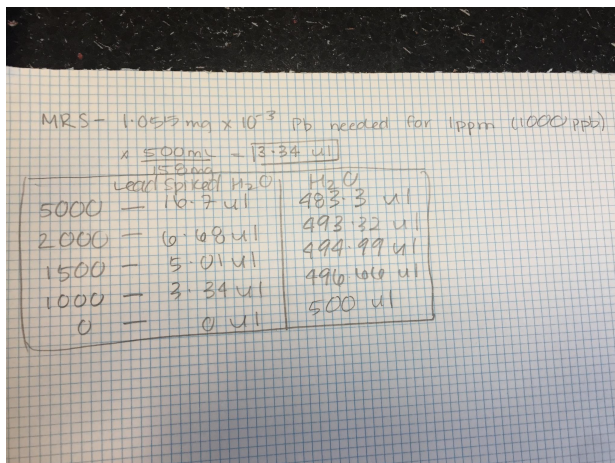 MRS - 1.055 mg x 10⁻³ Pb needed for 1ppm (1000 ppb)
x 500mL/158mg = 3.34 ul
Lead Spiked H₂O H₂O
5000 - 16.7 ul 483.3 ul
2000 - 6.68 ul 493.32 ul
1500 - 5.01 ul 494.99 ul
1000 - 3.34 ul 496.66 ul
0 - 0 ul 500 ul